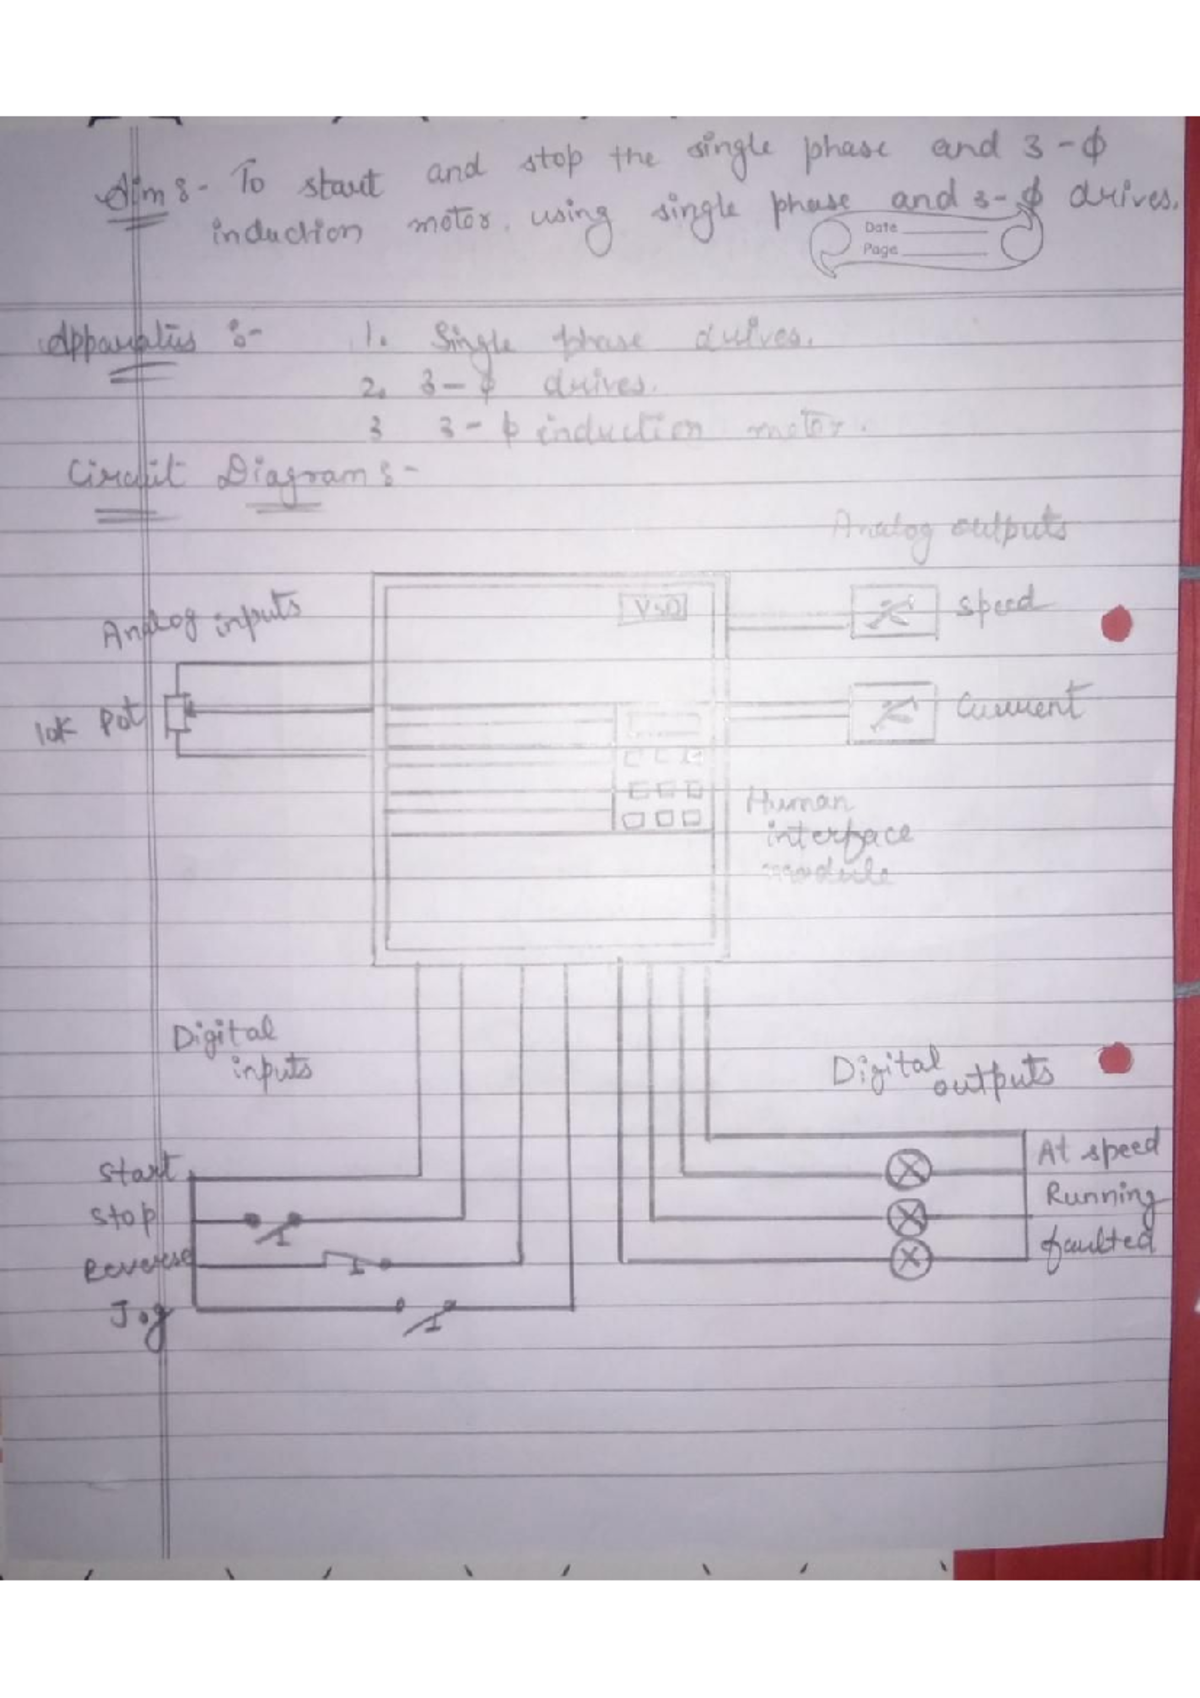 Aim :- To start and stop the single phase and 3-ϕ
induction motor. using single phase and 3-ϕ drives.
Date
Page
Apparatus :- 1. Single phase drives.
2. 3-ϕ drives.
3 3-ϕ induction motor.
Circuit Diagram :-
Analog outputs
Analog inputs
VSD
Speed
10K Pot
Current
Human
interface
module
Digital
inputs
Digital
outputs
Start
Stop
Reverse
Jog
At speed
Running
faulted